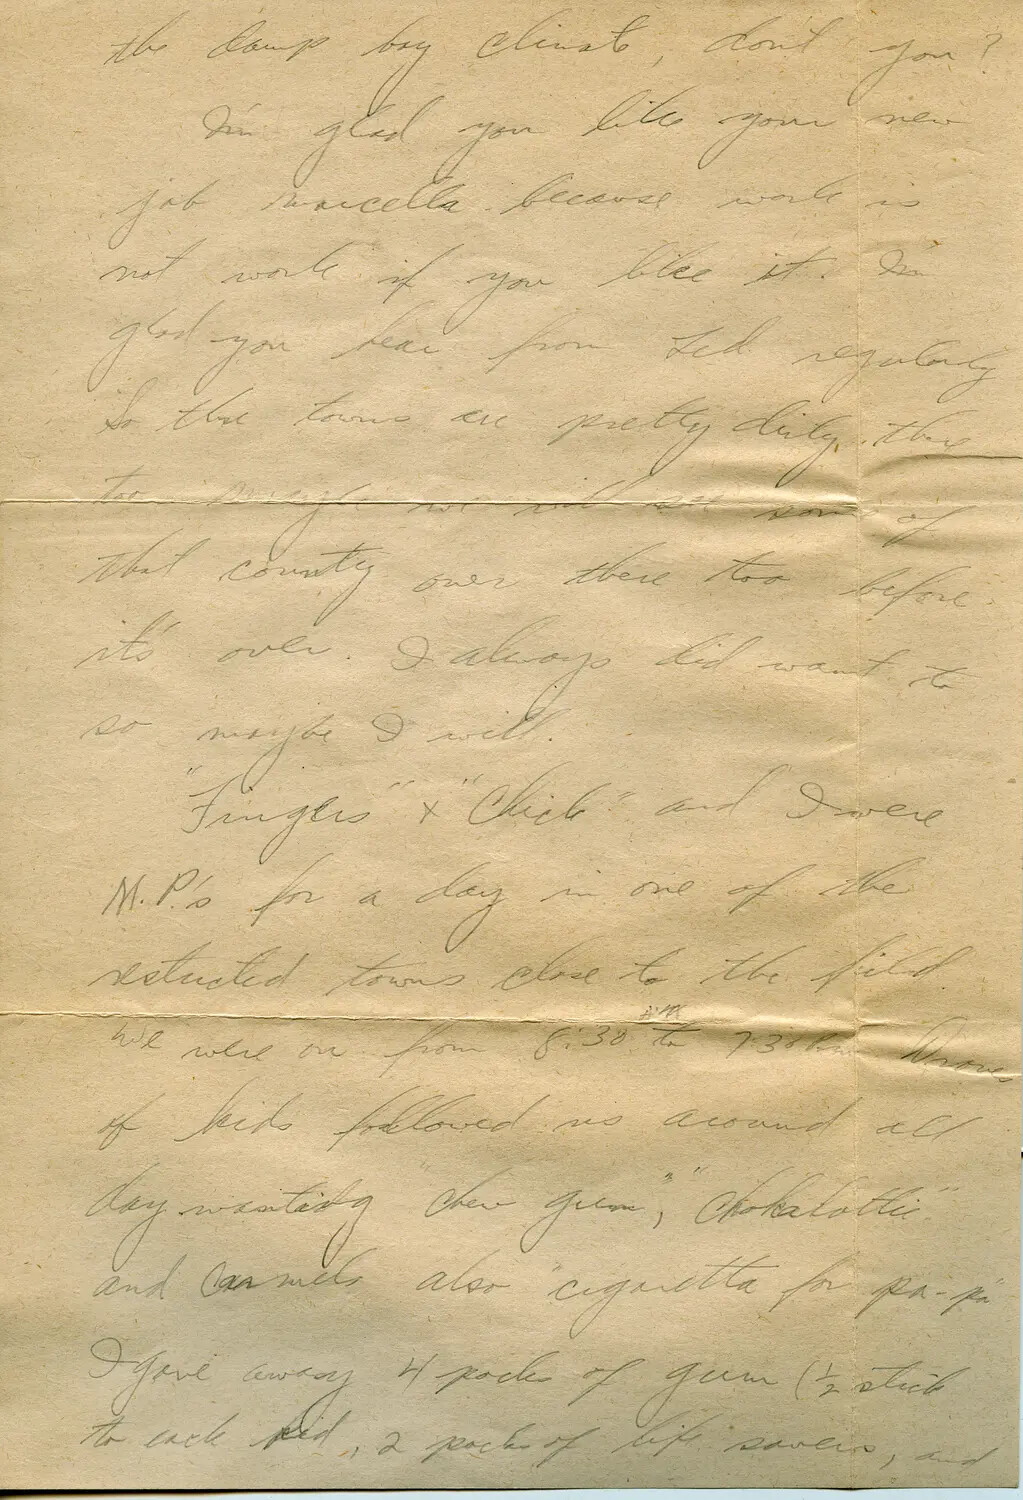 the damp bay climate, don't you?
I'm glad you like your new
job Marcella because work is
not work if you like it. I'm
glad you hear from Ted regularly
So the towns are pretty dirty there
too maybe we will see some of
that country over there too before
it's over. I always did want to
so maybe I will.
"Fingers" + "Chick" and I were
M.P.'s for a day in one of the
restricted towns close to the field.
We were on from 8:30 to 7:30 Droves
of kids followed us around all
day wanting "chew gum", "chokalottie"
and carmels also "cigaretta for pa-pa"
I gave away 4 packs of gum (1/2 stick
to each kid, 2 packs of life savers, and